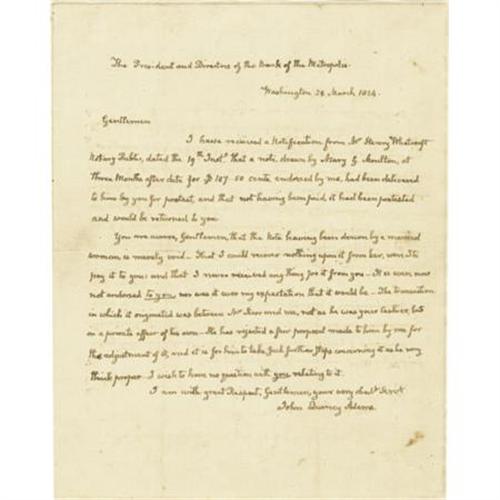 The President and Directors of the Bank of the Metropolis.
Washington 24 March 1824.
Gentlemen
I have received a Notification from Mr Henry Whetcroft
Notary Public, dated the 19th Instt that a note drawn by Mary G Moulton, at
Three Months after date for $ 187-50 cents endorsed by me, had been delivered
to him by you for protest, and that not having been paid it had been protested
and would be returned to you
You are aware, Gentlemen, that the Note having been drawn by a married
woman is merely void - That I could recover nothing upon it from her, were I to
pay it to you: and that I never received any thing for it from you - It is even now
not endorsed to you nor was it ever my expectation that it would be - The transaction
in which it originated was between Mr Kerr and me, not as he was your Cashier, but
on a private affair of his own - He has rejected a fair proposal made to him by me for
the adjustment of it, and it is for him to take such further steps concerning it as he may
think proper - I wish to have no question with you relating to it.
I am with great Respect, Gentlemen, your very obedt Servt
John Quincy Adams